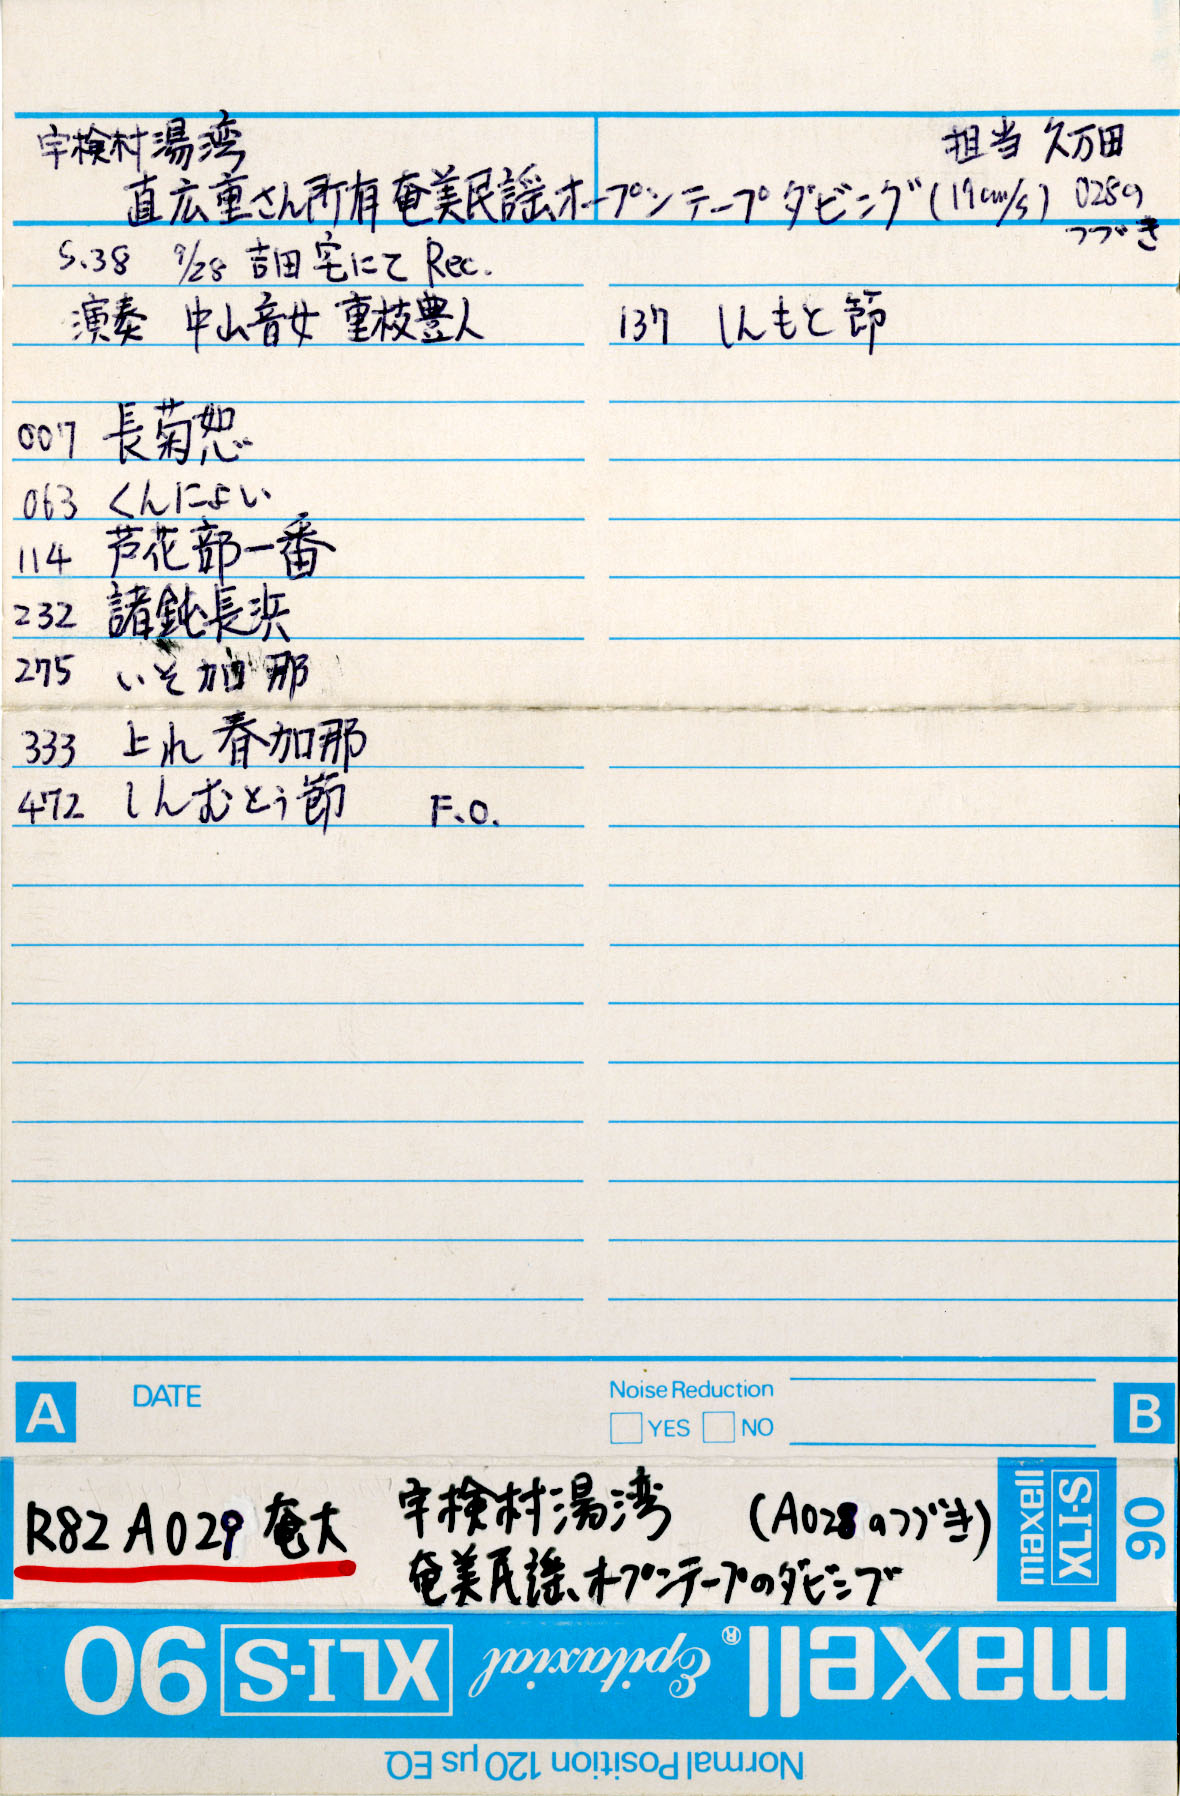 宇検村湯湾
担当 久万田
直広重さん所有 奄美民謡オープンテープダビング(19cm/s) 028の
つづき
S.38 9/28 吉田宅にて Rec.
演奏 中山音女 重枝豊人
007 長菊怨
063 くんにょい
114 芦花部一番
232 諸鈍長浜
275 いそ加那
333 上れ春加那
472 しんむとぅ節 F.O.
137 しんもと節
A
DATE
Noise Reduction
YES NO
B
R82 A029 奄大
宇検村湯湾 (A028のつづき)
奄美民謡、オープンテープのダビング
maxell
XLI-S
90
maxell® Epitaxial XLI-S 90
Normal Position 120μs EQ